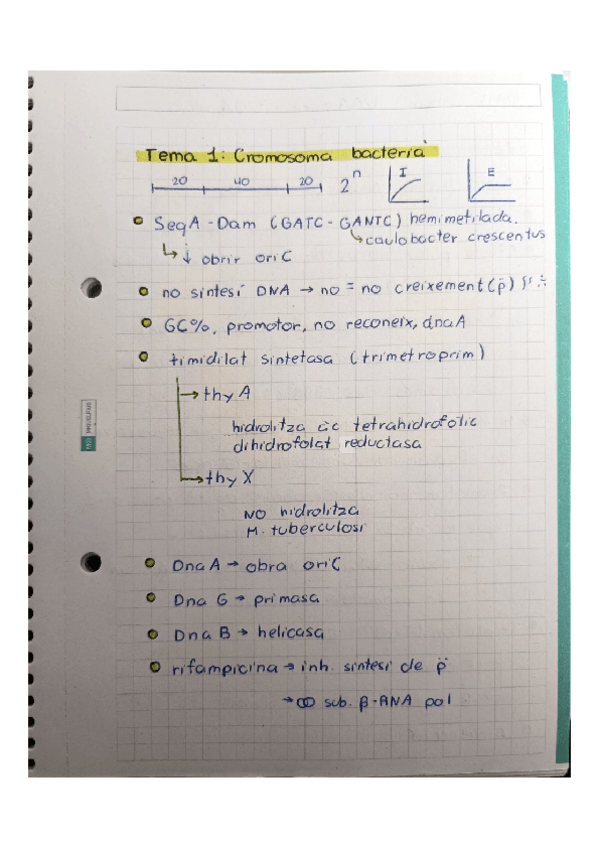 Tema 1: Cromosoma bacterià
20 40 20 2ⁿ I E
SeqA - Dam (GATC - GANTC) hemimetilada.
↳ caulobacter crescentus
↳ ↓ obrir oriC
no síntesi DNA → no = no creixement (p̈)
GC%, promotor, no reconeix, dnaA
timidilat sintetasa (trimetroprim)
→ thy A
hidrolitza àc tetrahidrofòlic
dihidrofolat reductasa
→ thy X
NO hidrolitza
M. tuberculosi
Dna A → obra oriC
Dna G → primasa
Dna B → helicasa
rifampicina → inh. síntesi de p̈
→ sub. β-RNA pol